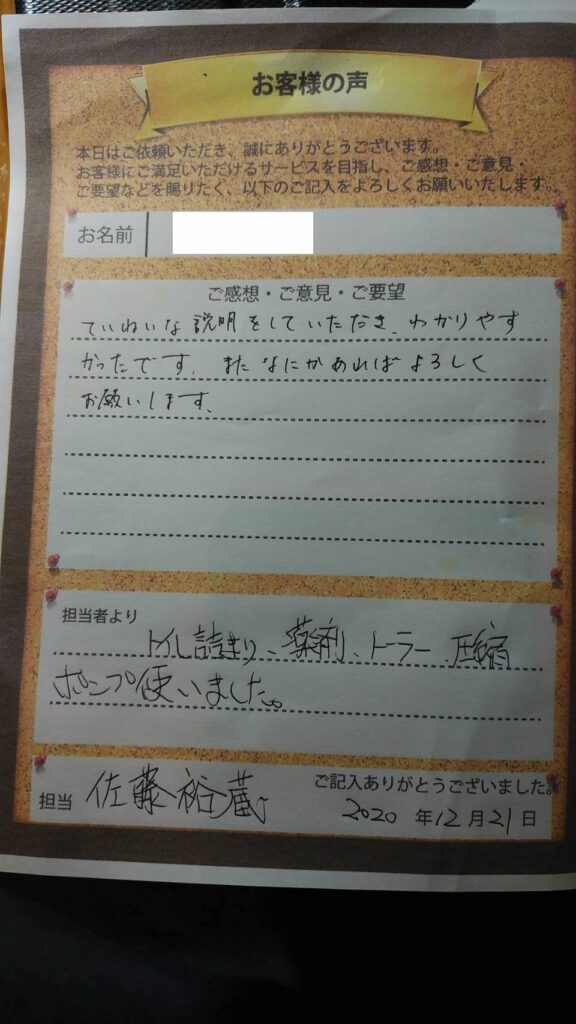 お客様の声
本日はご依頼いただき、誠にありがとうございます。
お客様にご満足いただけるサービスを目指し、ご感想・ご意見・
ご要望などを賜りたく、以下のご記入をよろしくお願いいたします。
お名前
ご感想・ご意見・ご要望
ていねいな説明をしていただき、わかりやす
かったです。またなにかあればよろしく
お願いします。
担当者より
トイレ詰まり、薬剤、トーラー、圧縮
ポンプ使いました。
ご記入ありがとうございました。
担当 佐藤裕蔵
2020年12月21日